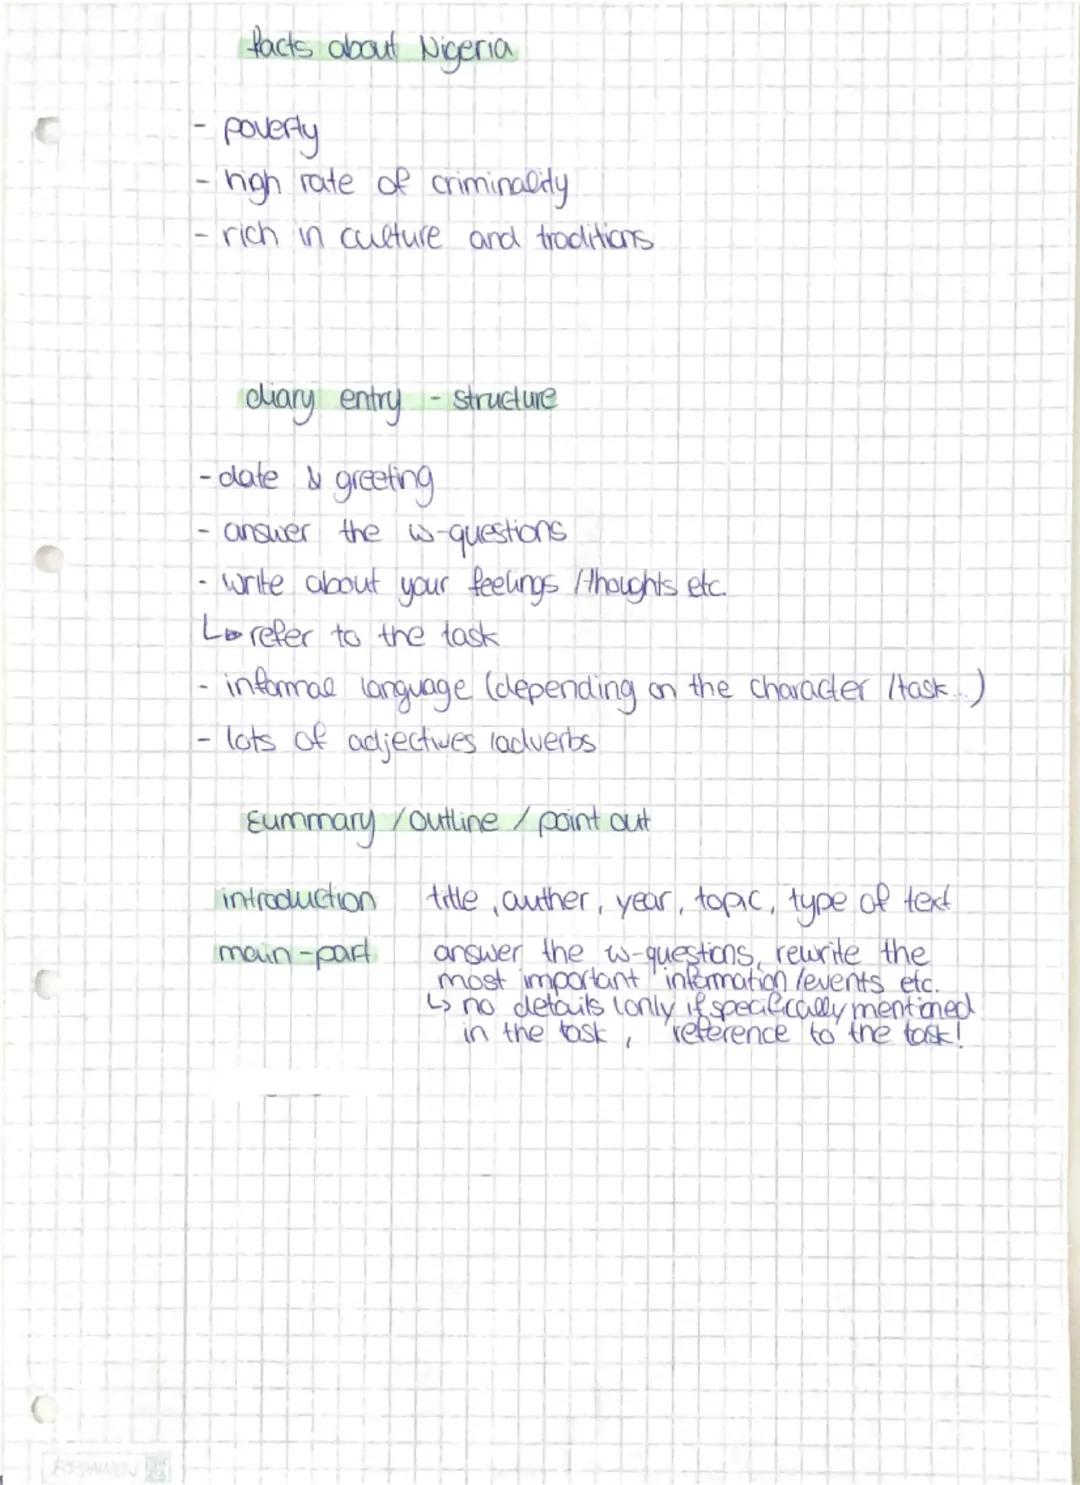 facts about Nigeria
- poverty
- high rate of criminality
- rich in culture and traditions
diary entry - structure
- date & greeting
- answer the w-questions
- write about your feelings / thoughts etc.
↳ refer to the task
- informal language (depending on the character / task...)
- lots of adjectives / adverbs
summary / outline / point out
introduction title, auther, year, topic, type of text
main-part answer the w-questions, rewrite the
most important information / events etc.
↳ no details (only if specifically mentioned
in the task, reference to the task!